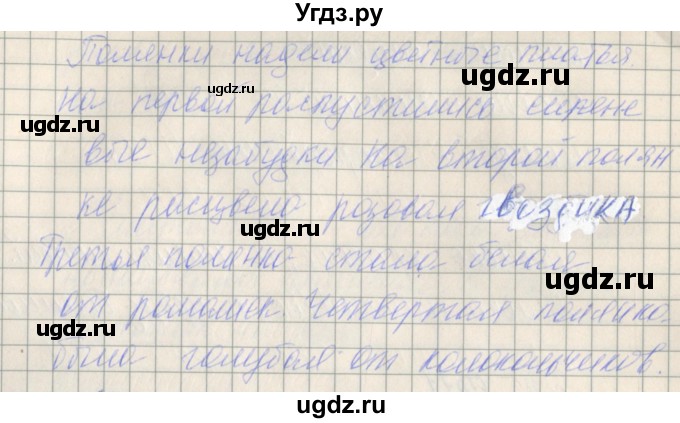 Угдз.ру
Полянки надели цветные платья.
На первой распустились сирене
вые незабудки На второй полян
ке расцвела розовая гвоздика
Третья полянка стала белая
от ромашек. Четвертая полянка
была голубая от колокольчиков.
ugdz.ru
ugdz.ru
ugdz.ru
ugdz.ru
ugdz.ru
ugdz.ru
ugdz.ru
ugdz.ru
ugdz.ru
ugdz.ru